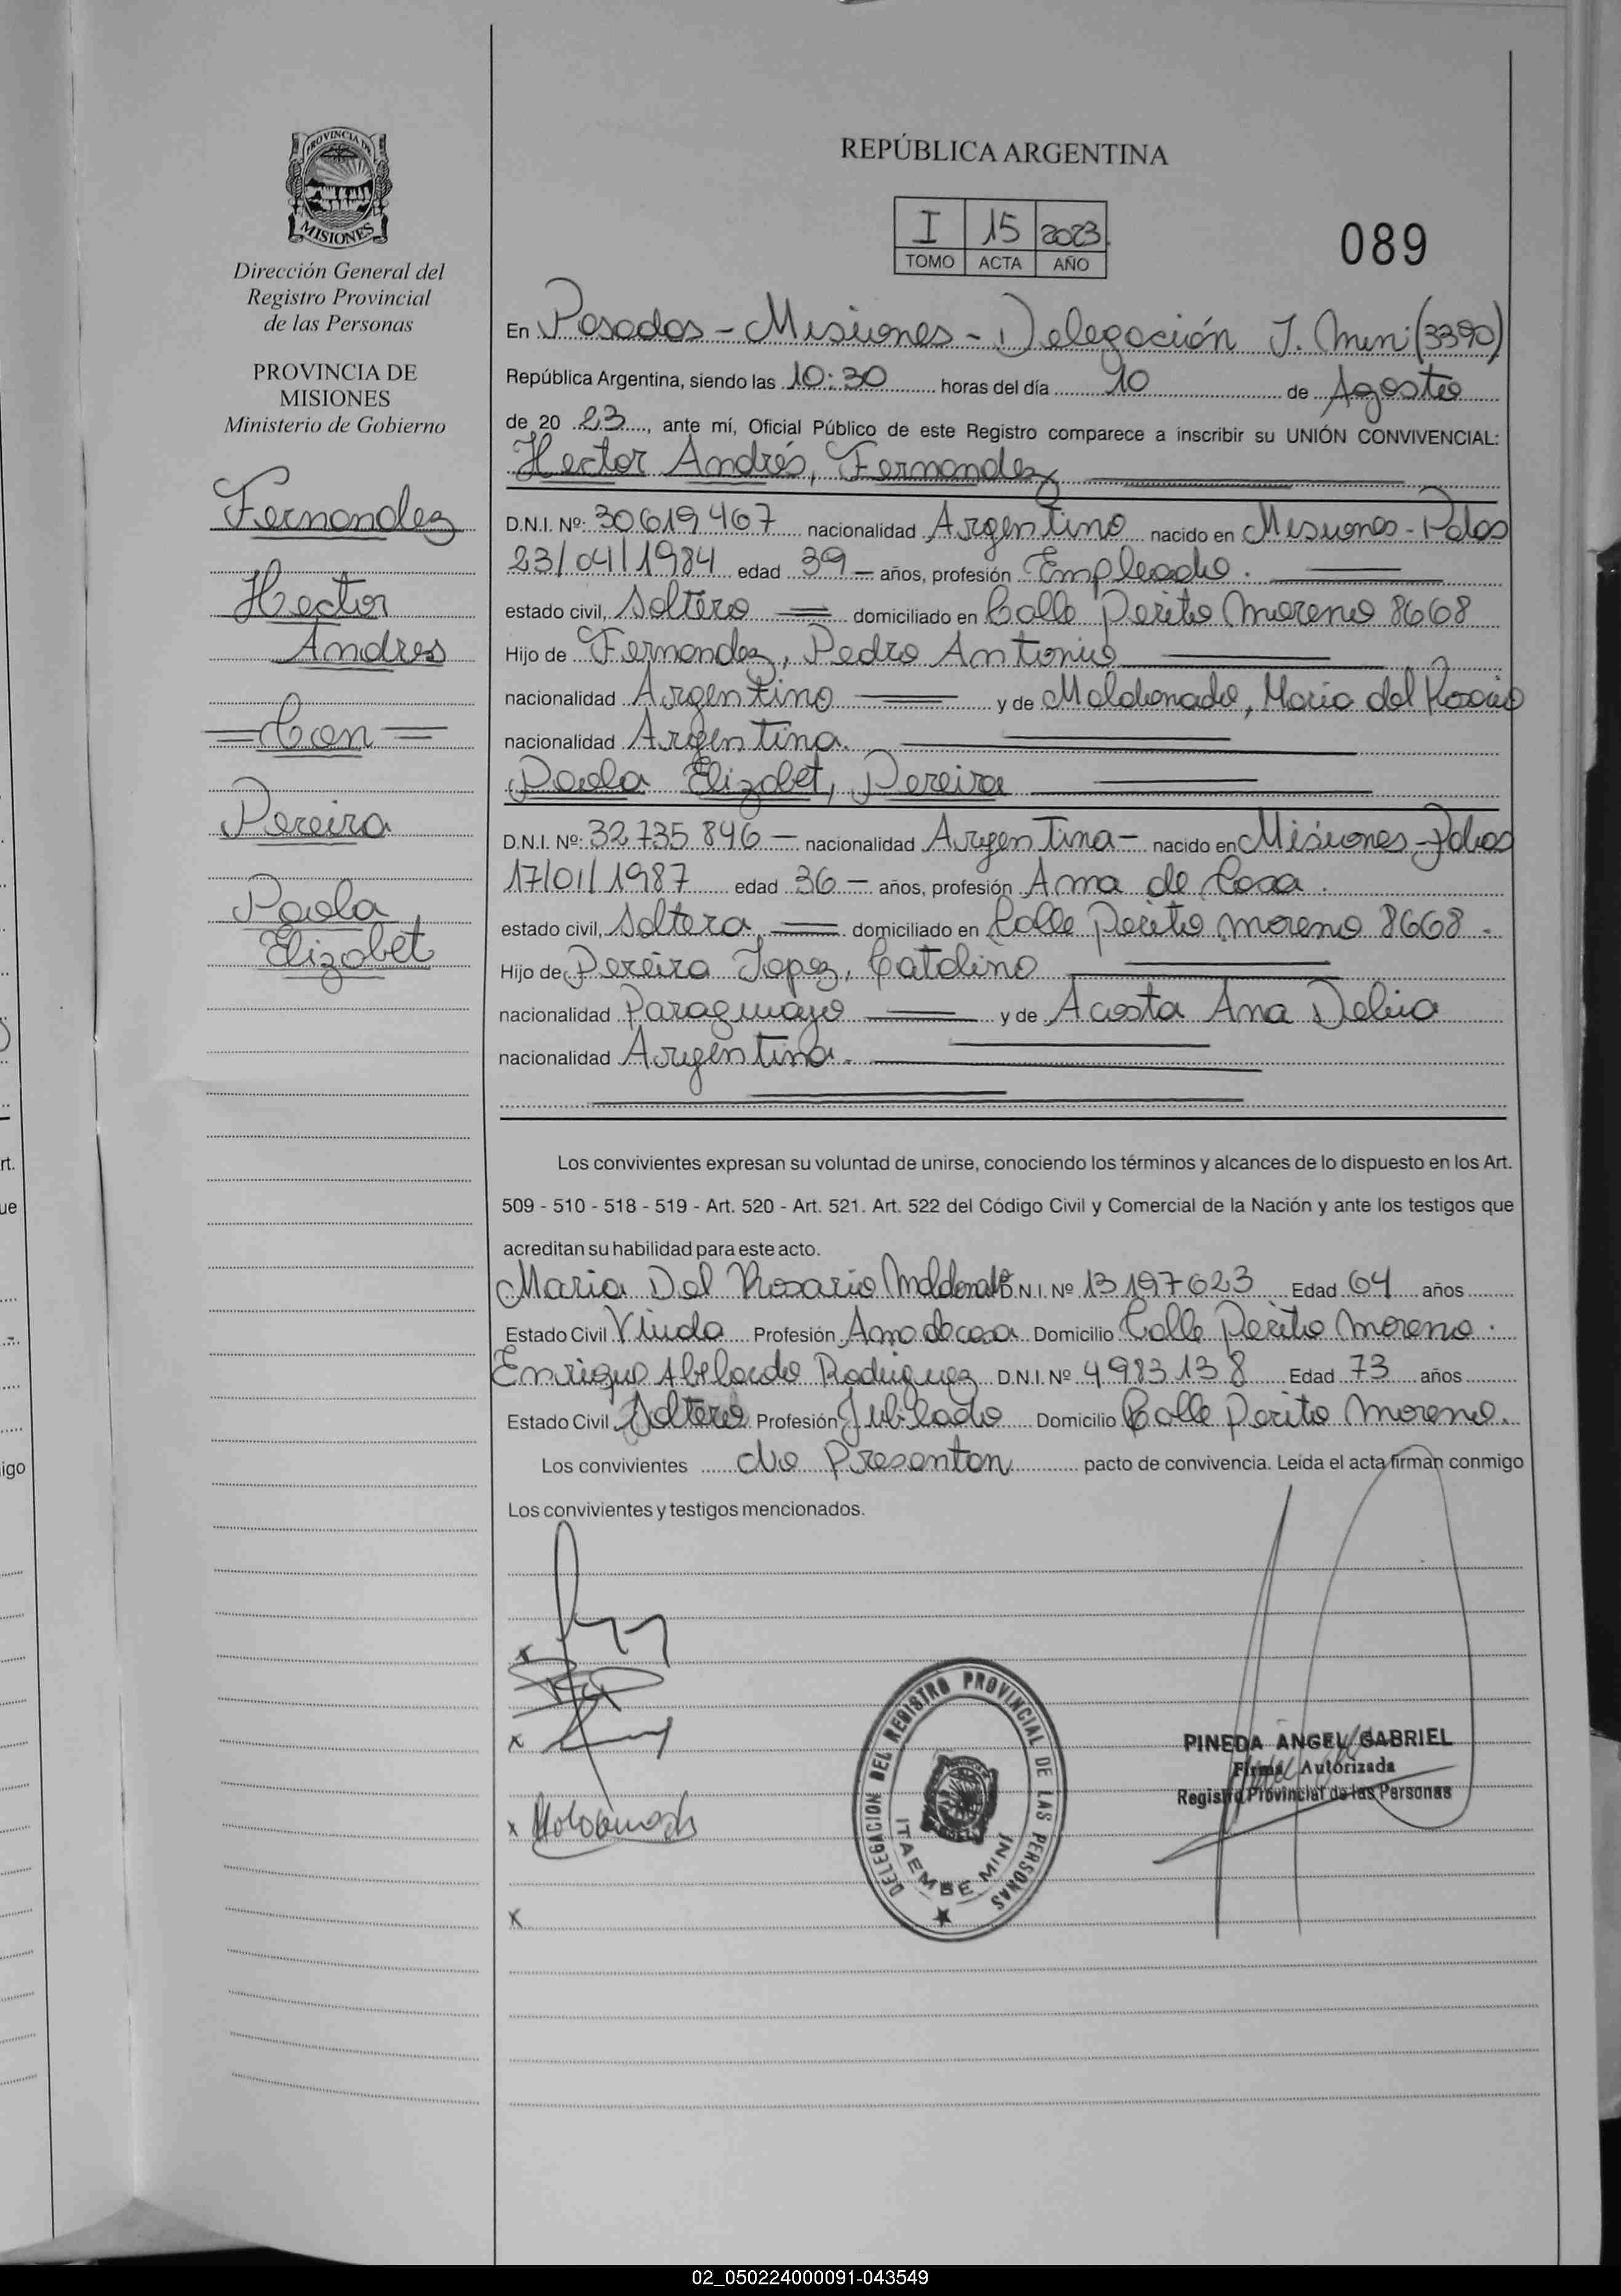 PROVINCIA DE
MISIONES
Dirección General del
Registro Provincial
de las Personas
PROVINCIA DE
MISIONES
Ministerio de Gobierno
Fernandez
Hector
Andres
Con
Pereira
Paola
Elizabet
REPÚBLICA ARGENTINA
I 15 2023
TOMO ACTA AÑO
089
En Posadas - Misiones - Delegación I. Mini (3390)
República Argentina, siendo las 10:30 horas del día 10 de Agosto
de 20 23, ante mí, Oficial Público de este Registro comparece a inscribir su UNIÓN CONVIVENCIAL:
Hector Andrés, Fernandez
D.N.I. Nº: 30619467 nacionalidad Argentino nacido en Misiones - Pdas
23/04/1984 edad 39 - años, profesión Empleado.
estado civil, Soltero domiciliado en Calle Perito Moreno 8668
Hijo de Fernandez, Pedro Antonio
nacionalidad Argentino y de Maldonado, Maria del Rosario
nacionalidad Argentina.
Paola Elizabet, Pereira
D.N.I. Nº: 32735846 - nacionalidad Argentina - nacido en Misiones - Pdas
17/01/1987 edad 36 - años, profesión Ama de Casa.
estado civil, Soltera, domiciliado en Calle Perito Moreno 8668.
Hijo de Pereira Lopez, Catalino
nacionalidad Paraguayo y de Acosta Ana Delia
nacionalidad Argentina.
Los convivientes expresan su voluntad de unirse, conociendo los términos y alcances de lo dispuesto en los Art.
509 - 510 - 518 - 519 - Art. 520 - Art. 521. Art. 522 del Código Civil y Comercial de la Nación y ante los testigos que
acreditan su habilidad para este acto.
Maria Del Rosario Maldonado D.N.I. Nº 13197623 Edad 64 años
Estado Civil Viuda Profesión Ama de casa Domicilio Calle Perito Moreno.
Enrique Abelardo Rodriguez D.N.I. Nº 4983138 Edad 73 años
Estado Civil Soltero Profesión Jubilado Domicilio Calle Perito Moreno.
Los convivientes No Presentan pacto de convivencia. Leída el acta firman conmigo
Los convivientes y testigos mencionados.
x
x
x
x
DELEGACION DEL REGISTRO PROVINCIAL DE LAS PERSONAS
ITAEMBE MINI
PINEDA ANGEL GABRIEL
Firma Autorizada
Registro Provincial de las Personas
rt.
ue
igo
02_050224000091-043549